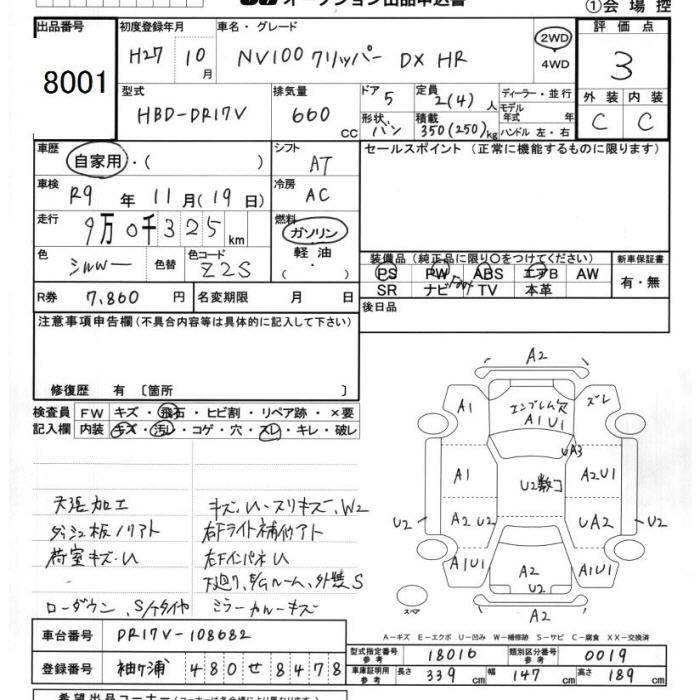 オークション出品申込書
①会場控
出品番号
8001
初度登録年月
H27 10月
車名・グレード
NV100 クリッパー DX HR
2WD
4WD
評価点
3
外装 内装
C C
型式
HBD-DR17V
排気量
660 cc
ドア
5
形状
バン
定員
2(4)人
積載
350(250)kg
ディーラー・並行
モデル年式 年
ハンドル 左・右
車歴
自家用・( )
シフト
AT
車検
R9年 11月(19日)
冷房
AC
走行
9万0千325km
燃料
ガソリン
軽油
( ・ )
色
シルバー
色替
色コード
Z2S
R券
7,860円
名変期限 月 日
セールスポイント(正常に機能するものに限ります)
装備品(純正品に限り〇をつけてください)
PS PW ABS エアB AW
SR ナビ TV 本革
新車保証書
有・無
後日品
注意事項申告欄(不具合内容等は具体的に記入して下さい)
修復歴 有〔箇所 〕
検査員記入欄
FW キズ・飛石・ヒビ割・リペア跡・×要
内装 キズ・汚レ・コゲ・穴・スレ・キレ・破レ
天張加工
ダッシュ板ノリアト
荷室キズ・U
ローダウン、S/Fタイヤ
キズ、U・スリキズ、W2
右Fライト補修アト
右FインパネU
下廻り、E/Gルーム、外装S
ミラーカルーキズ
A2
A1
エンブレム穴
A1U1
ズレ
UA3
A1
U2数コ
A2U1
U2
A2 U2
UA2
U2
A1U1
A2
U2
A1U1
A2
スペア
A－キズ E－エクボ U－凹み W－補修跡 S－サビ C－腐食 XX－交換済
車台番号
DR17V-108682
登録番号
袖ヶ浦 480せ8478
型式指定番号 参考
18016
類別区分番号 参考
0019
車庫証明用 参考
長さ 339cm 幅 147cm 高さ 189cm
希望出品コーナー